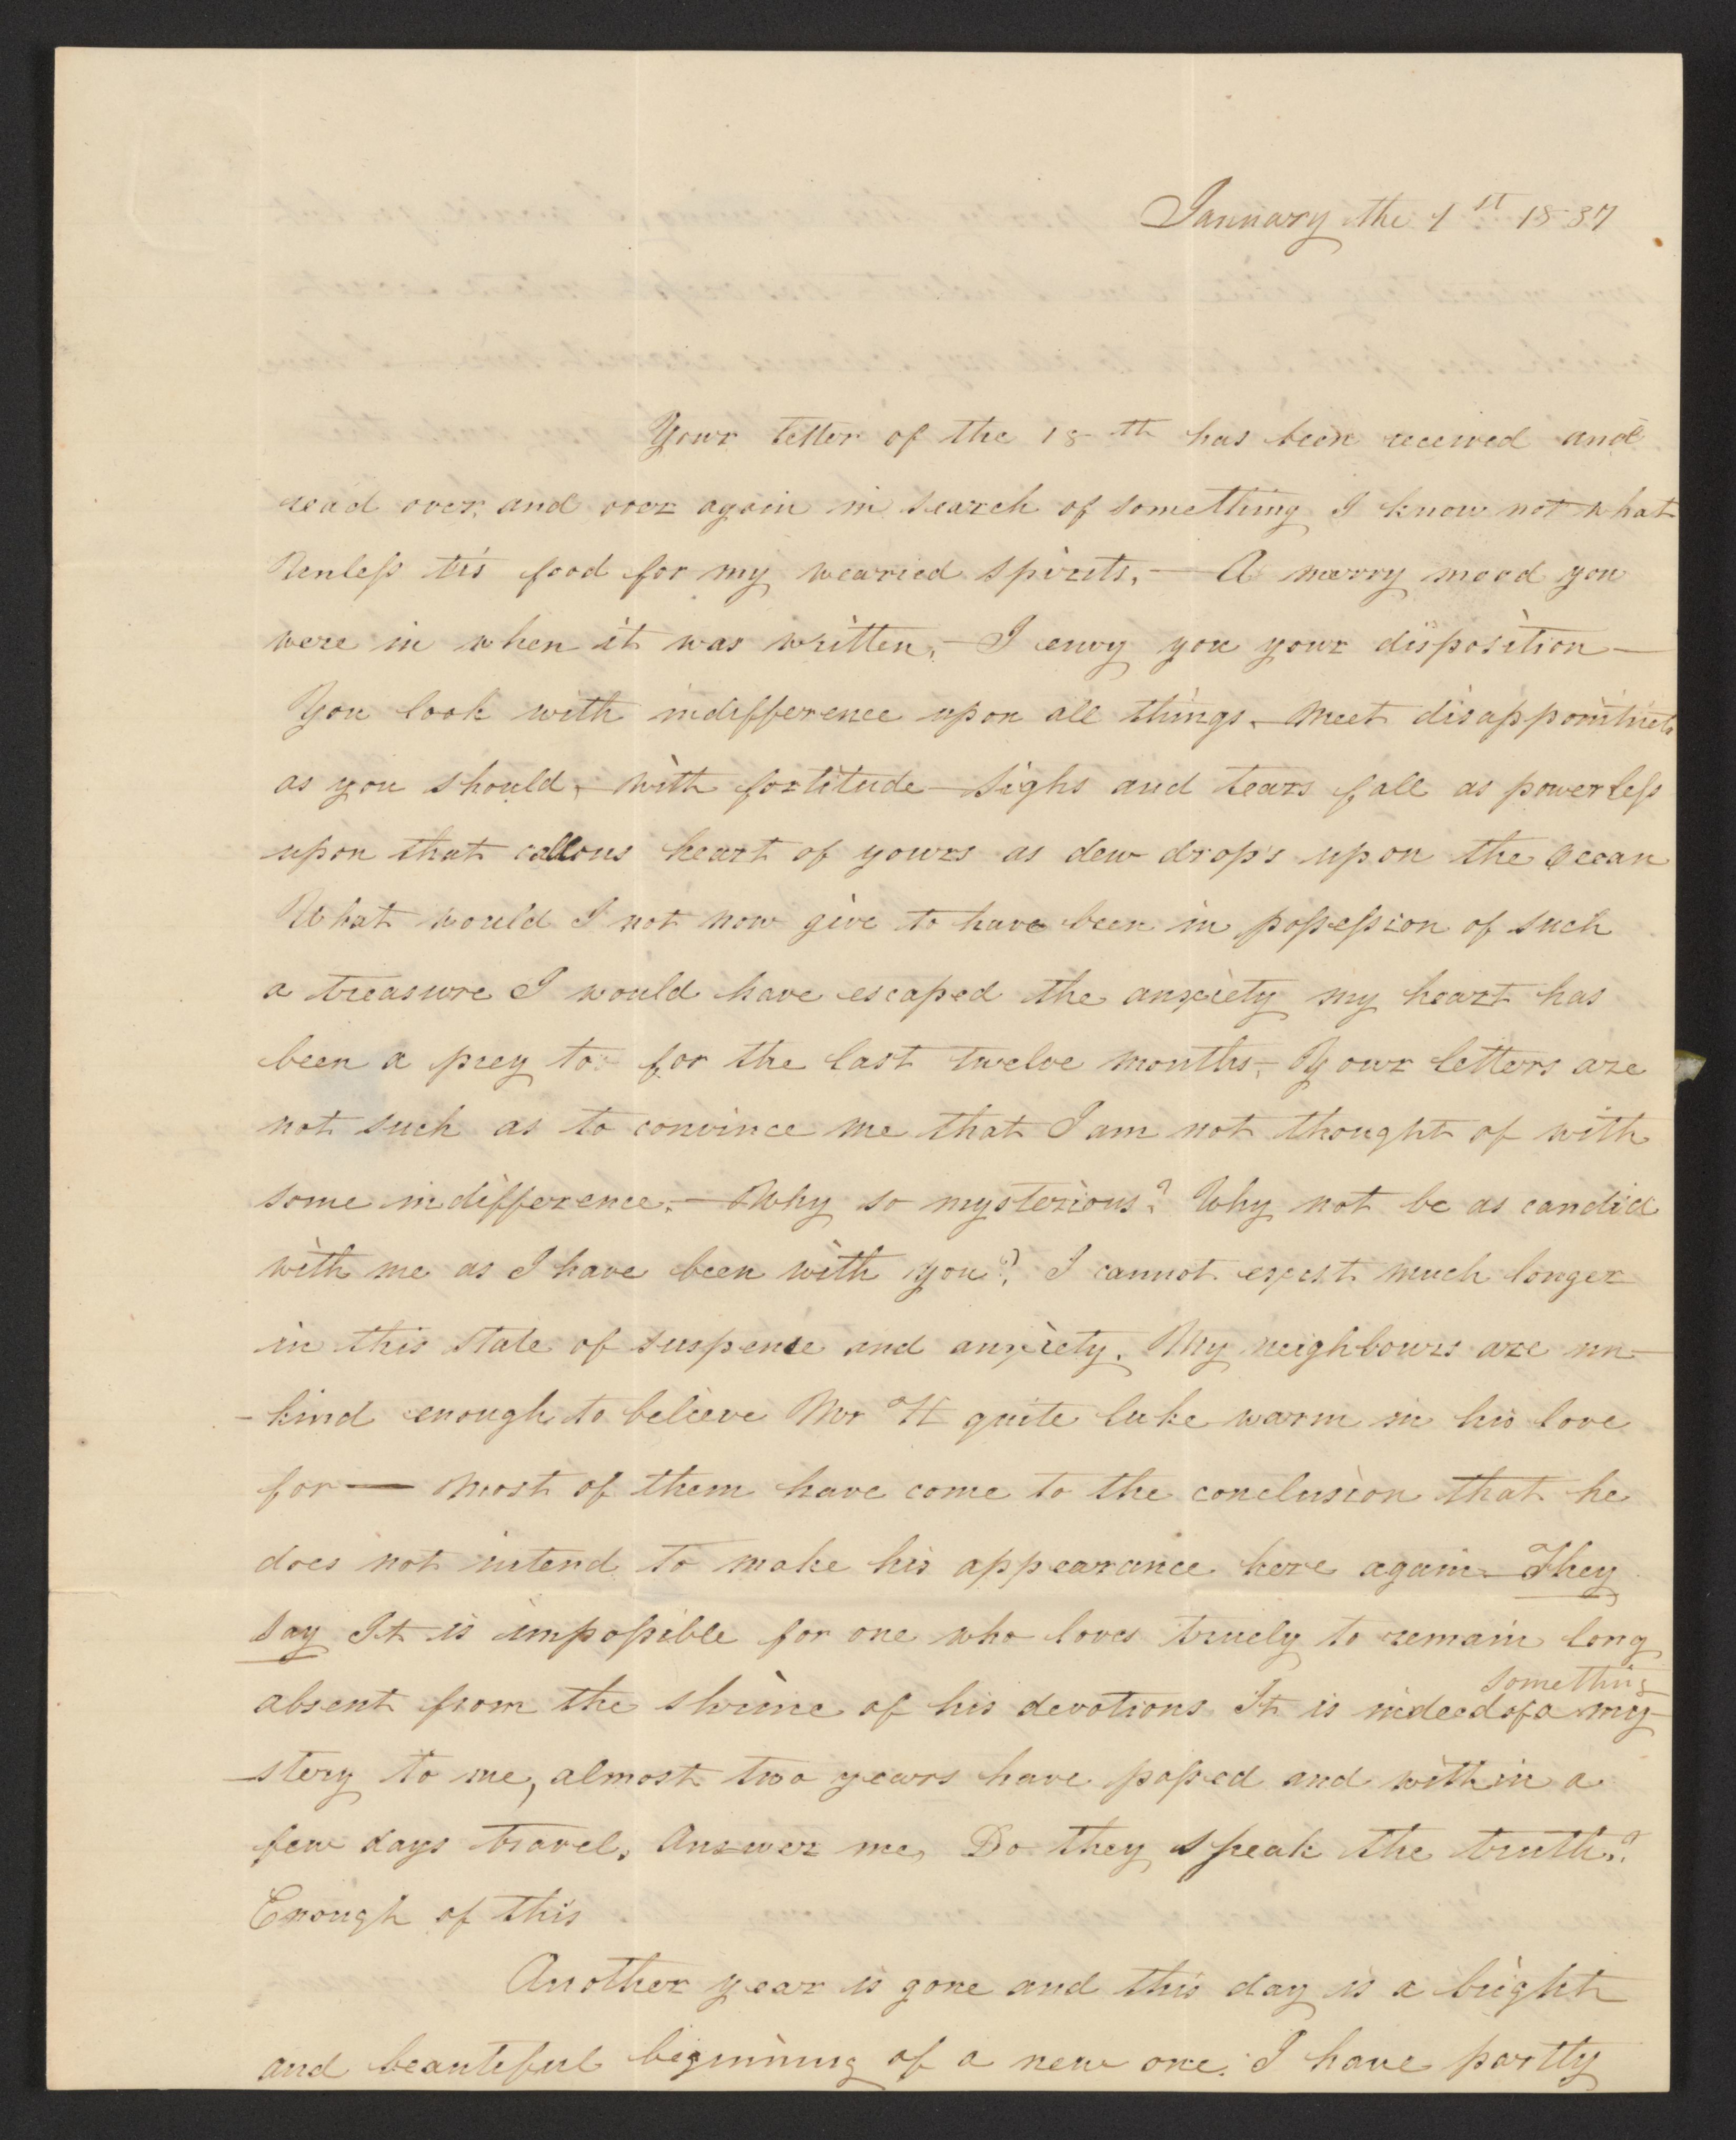 January the 1st 1837
Your letter of the 18th has been received and
read over and over again in search of something I know not what
Unless tis food for my wearied spirits, — A merry mood you
were in when it was written, — I envy you your disposition —
You look with indifference upon all things, meet disappointmets
as you should, with fortitude — sighs and tears fall as powerless
upon that callous heart of yours as dew drops upon the Ocean
What would I not now give to have been in possession of such
a treasure I would have escaped the anxiety my heart has
been a prey to for the last twelve months, — Your letters are
not such as to convince me that I am not thought of with
some indifference. — Why so mysterious? Why not be as candid
with me as I have been with you? I cannot exist much longer
in this state of suspense and anxiety. My neighbours are un-
-kind enough to believe Mr H quite luke warm in his love
for — Most of them have come to the conclusion that he
does not intend to make his appearance here again. They
say It is impossible for one who loves truely to remain long
absent from the shrine of his devotions It is indeed something of a my-
-stery to me, almost two years have passed and within a
few days travel. Answer me, Do they speak the truth?
Enough of this
Another year is gone and this day is a bright
and beautiful beginning of a new one. I have partly